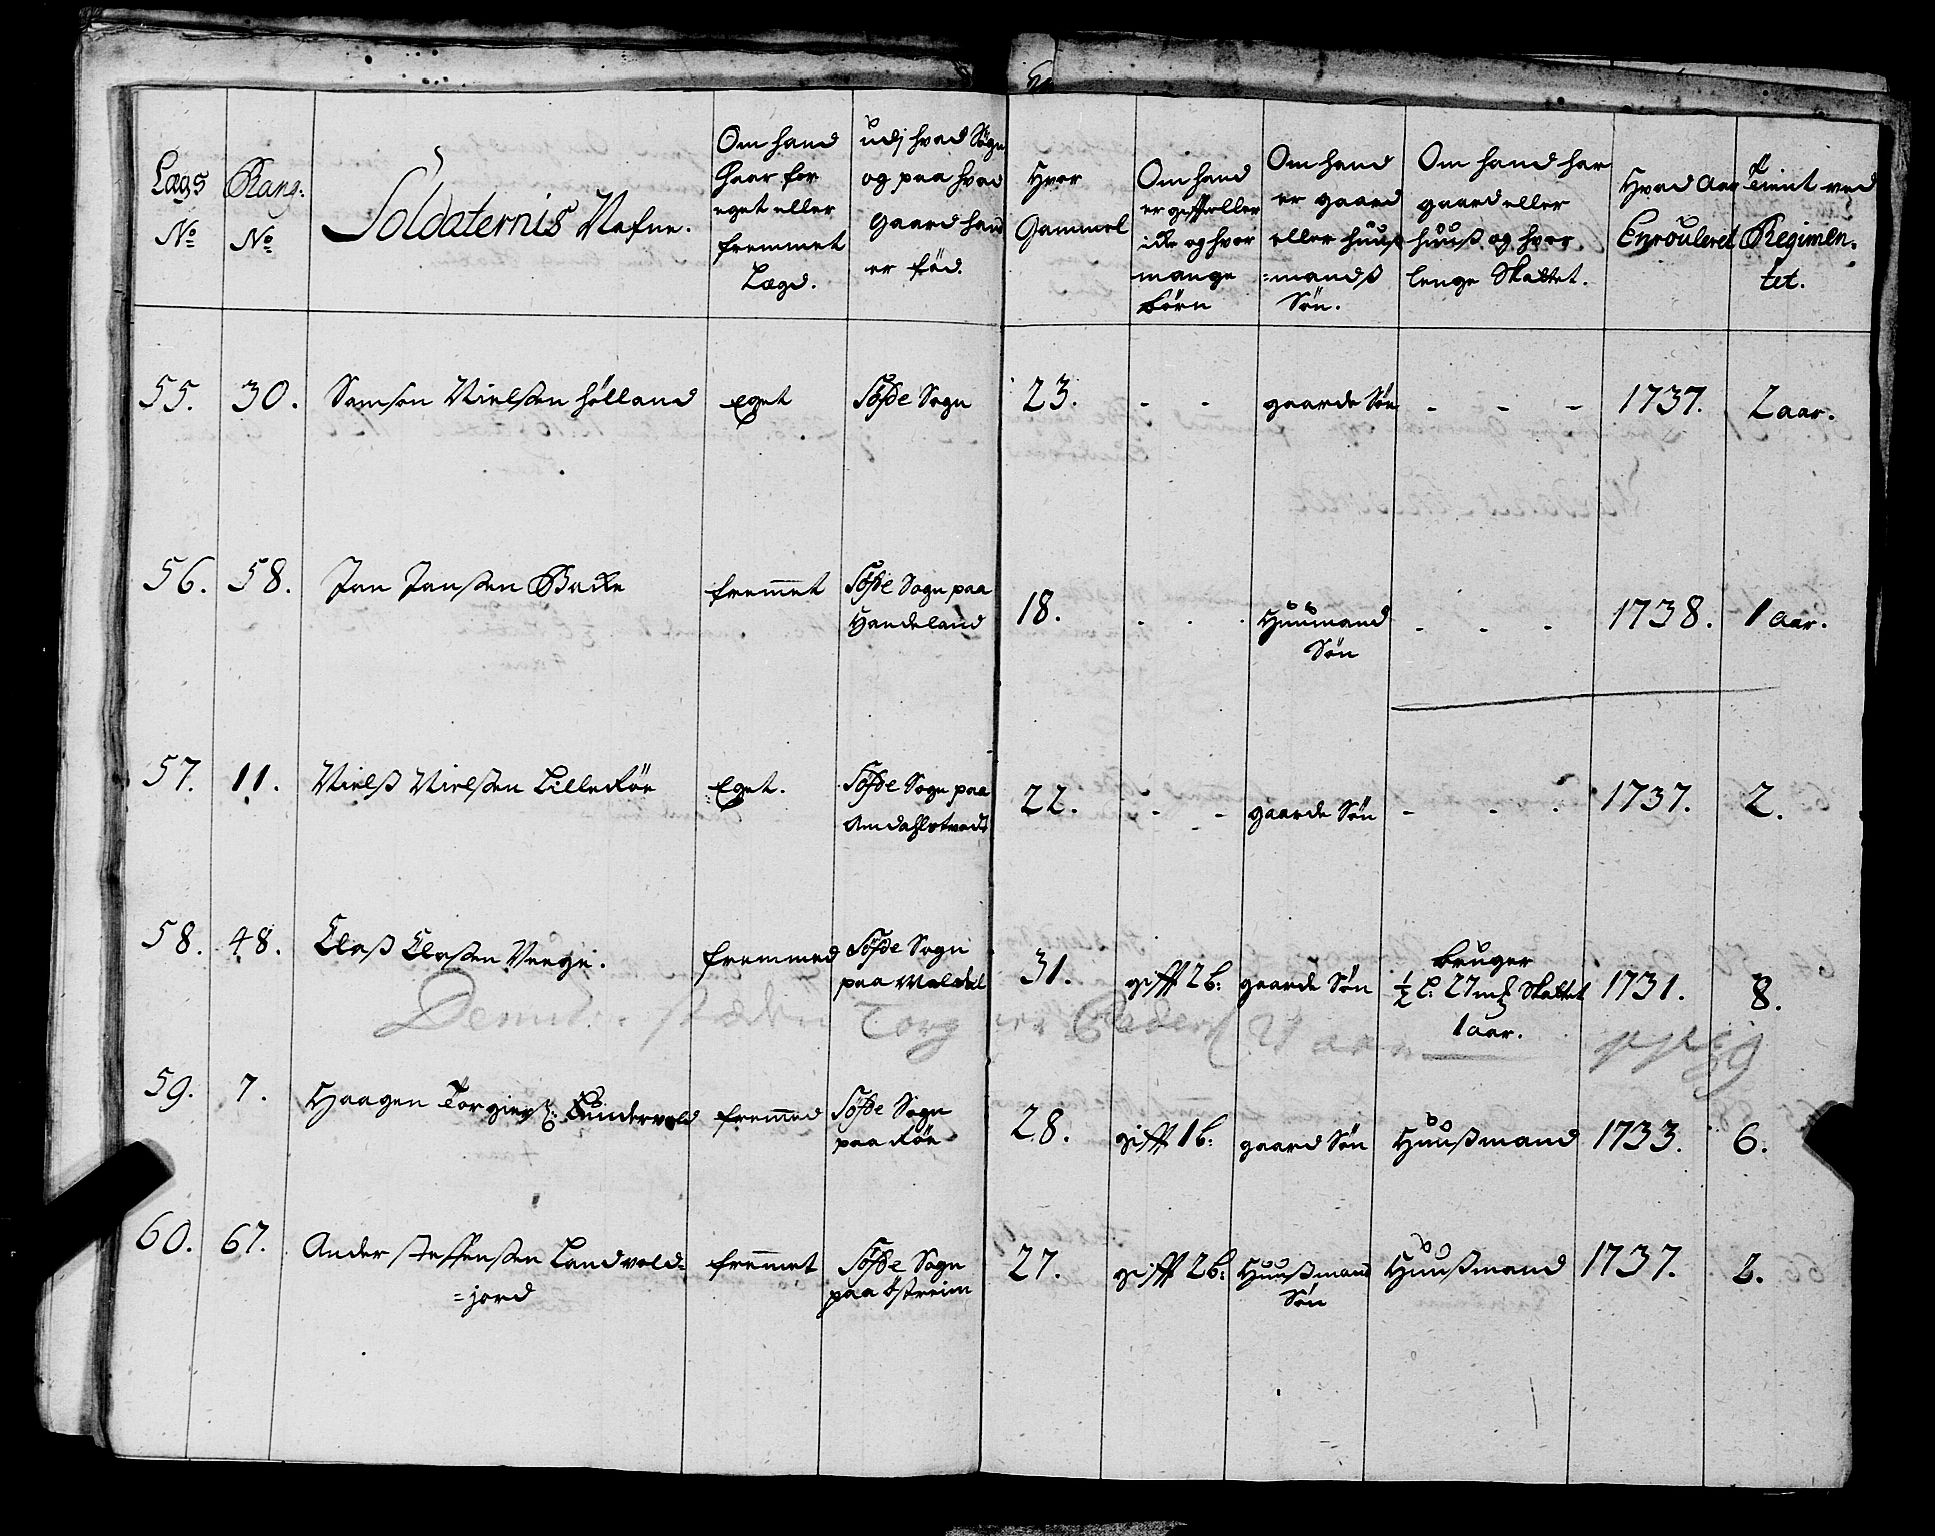 Lægs No
Rang: No
Soldaternis Nafne.
Om hand
haar for
eget eller
fremmet
Lægd.
udj hvad Sögn
og paa hvad
gaard hand
er fød.
Hvor
Gammel
Om hand
er gift eller
icke og hvor
mange
børn
Om hand
er gaard
eller huus
=mandß
Søn.
Om hand har
gaard eller
huuß og hvor
lenge Skattet.
Hvad Aar
Enrouleret
Tient ved
Regimen-
tet.
55. 30. Samson Nielßen Hölland eget Söfde Sogn 23. - - gaarde Søn - - - 1737. 2 aar.
56. 58. Jan Janßen Backe fremmet Söfde Sogn paa
Handeland 18. - - - Huusmand
Søn - - - 1738. 1 aar.
57. 11. Nielß Nielßen Eget. Söfde Sogn paa
22. - - gaarde Søn - - - 1737. 2.
58. 48. Claß Claßen fremmed Söfde Sogn
paa 31. gift 2 b: gaarde Søn bruger
½ L: Skattet
1 aar. 1731. 8.
59. 7. Haagen Torgiers: fremmed Söfde Sogn
paa Röe 28. gift 1 b: gaard Søn Huußmand 1733. 6.
60. 67. Ander Steffenßen Landvold=
=jord fremmet Söfde Sogn
paa Östreim 27. gift 2 b: Huußmand
Søn Huußmand 1737. 2.